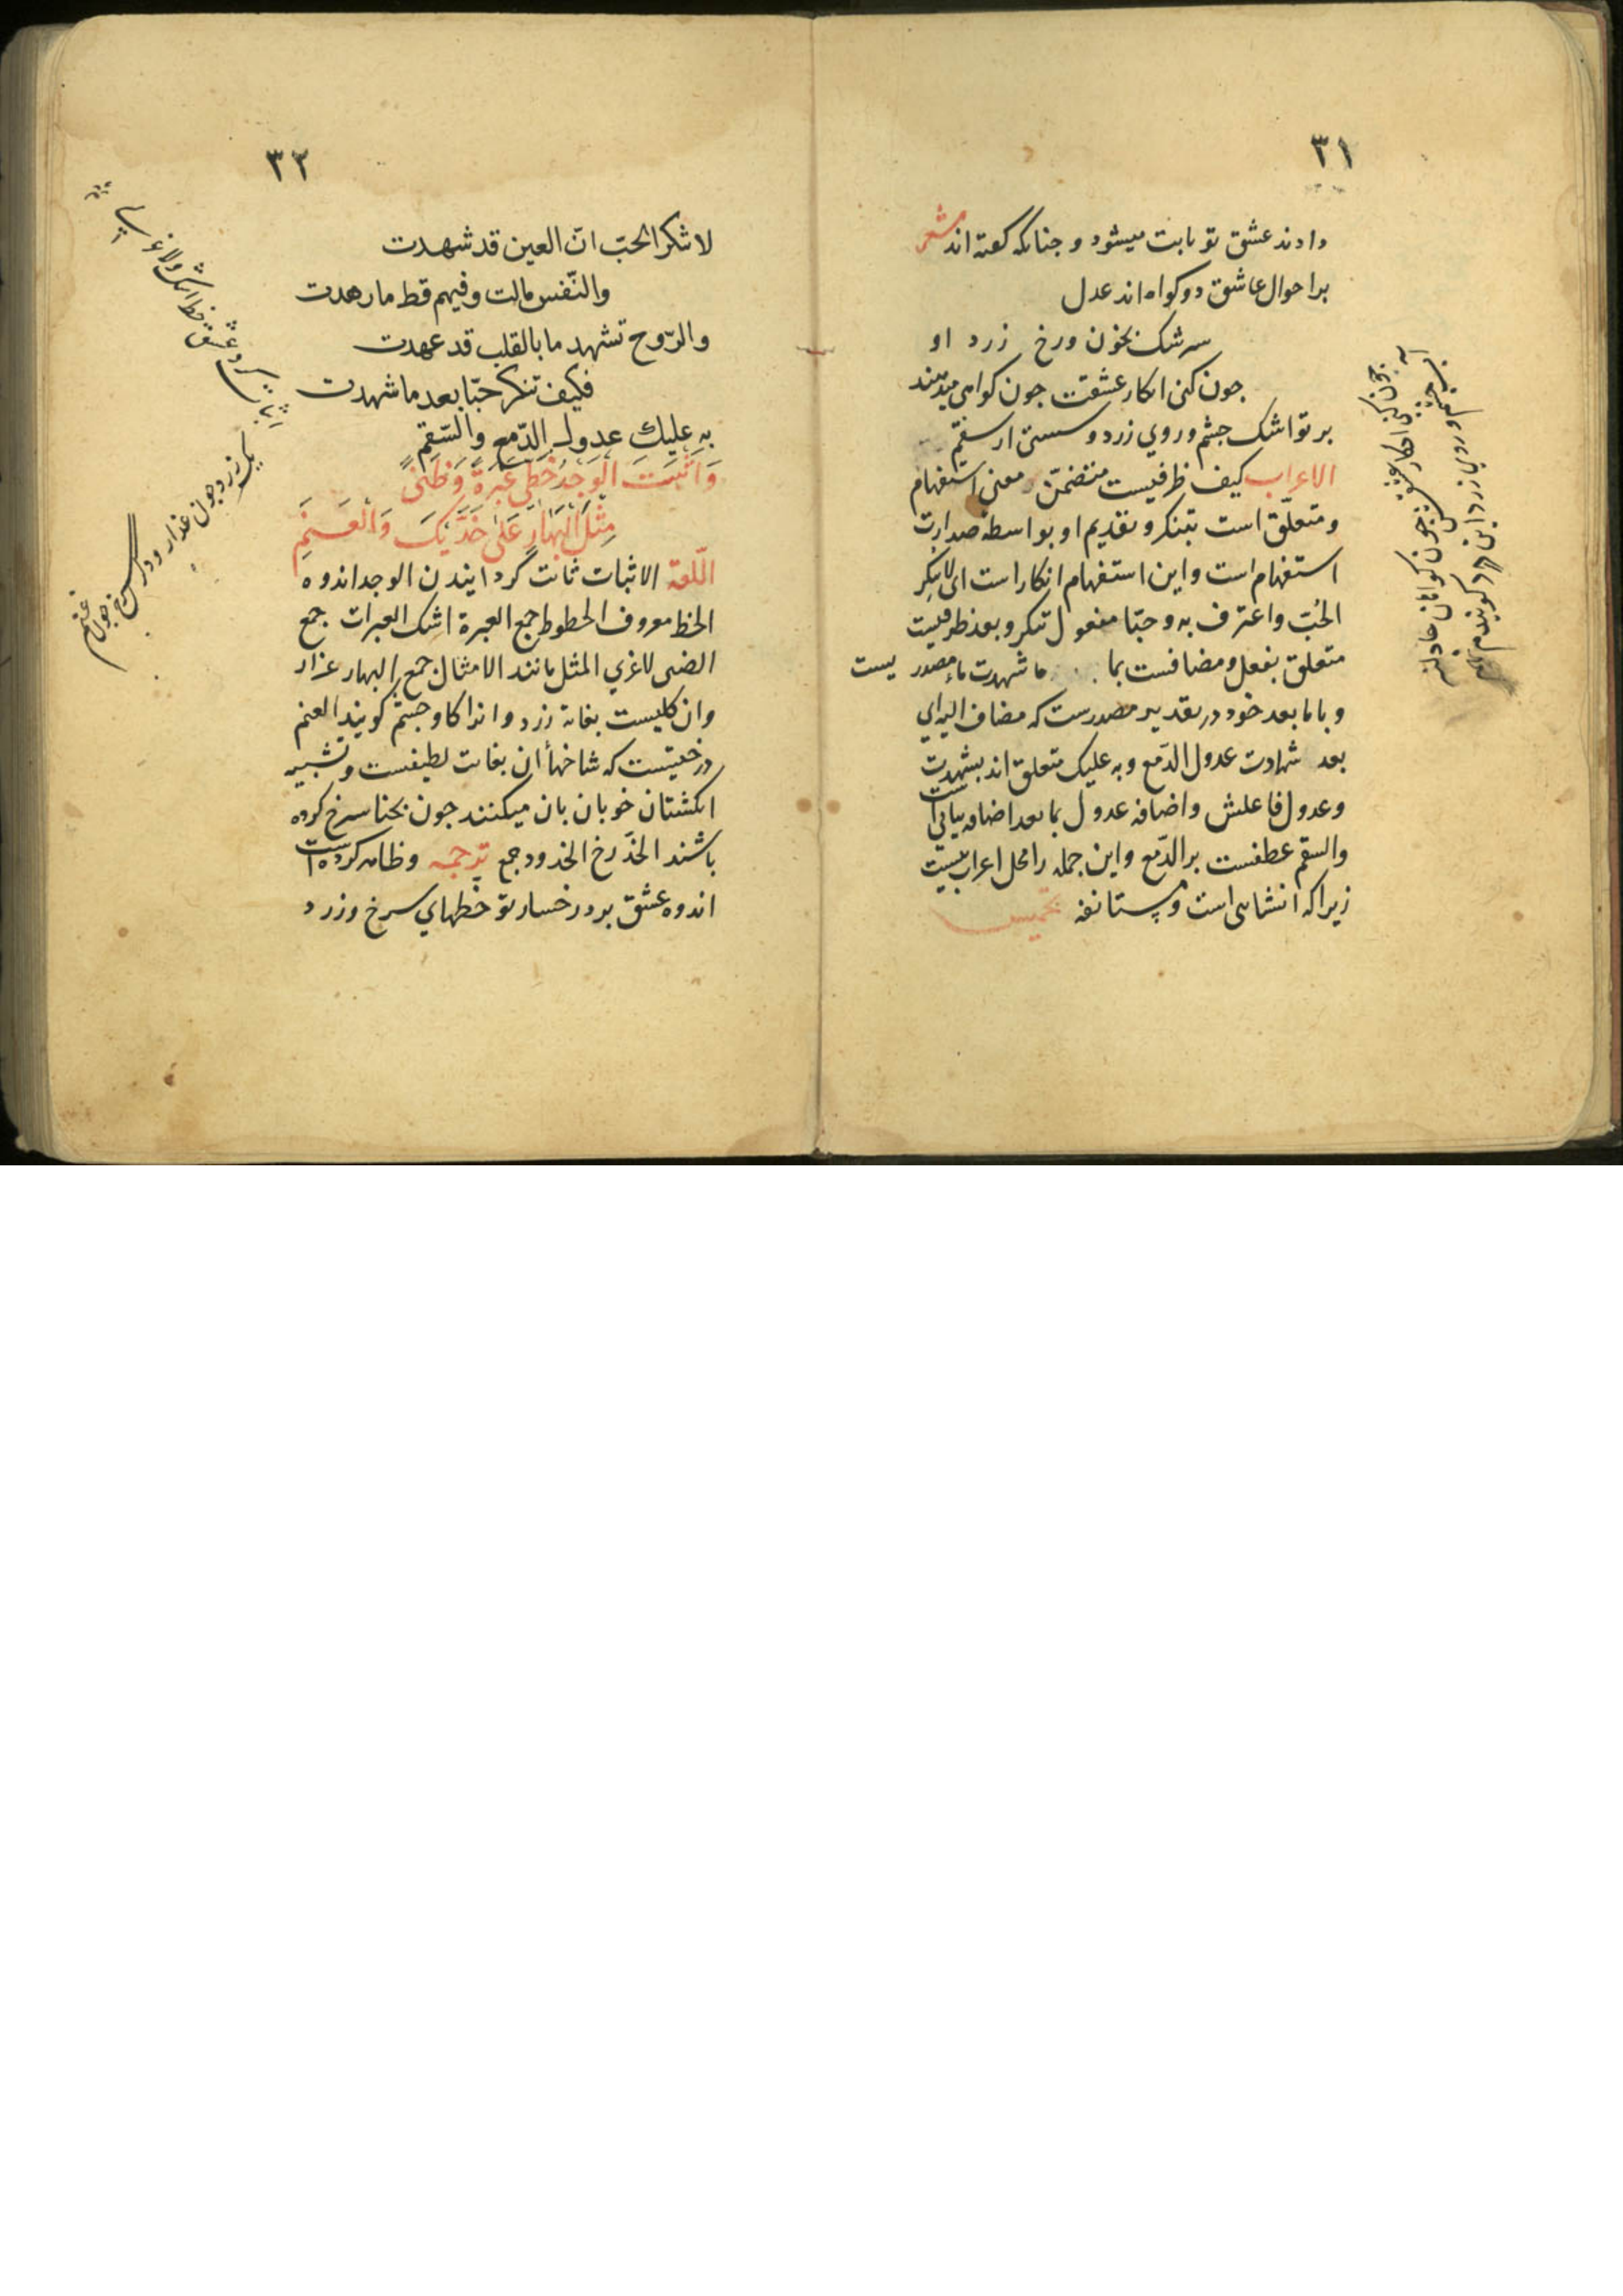 ٣١
دادند عشق تو ثابت میشود و جنانکه کفته اند شعر
بر احوال عاشق دو کواه اند عدل
سرشک بخون ورخ زرد او
جون کنی انکار عشقت جون کواهی میدهند
بر تو اشک جشم وروي زرد و سستی از سقم
الاعراب کیف ظرفیست متضمّن معنی استفهام
ومتعلّق است بتنکر وتقدیم او بواسطه صدارت
استفهام است واین استفهام انکار است ای لا تنکر
الحُبّ واعترف به وحبّا مفعول تنکر وبعد ظرفیست
متعلق بفعل ومضافست بما ما شهدت ما مصدر یست
وبا ما بعد خود در تقدیر مصدرست که مضاف الیه اي
بعد شهادت عدول الدّمع وبه علیک متعلق اند بشهدت
وعدول فاعلش واضافه عدول بما بعد اضافه بیانی است
والسقم عطفست بر الدّمع واین جمله را محل اعراب نیست
زیراکه انشائی است ومستانفه تخمیس
جون کنی انکار عشق جون کواهان عادلند
اشک جشم و روي زرد این هر دو کویند
٣٢
لا تنکر الحبّ انّ العین قد شهدت
والنّفس مالت وفیهم قط ما زهدت
والرّوح تشهد ما بالقلب قد عهدت
فکیف تنکر حبّا بعد ما شهدت
بِهِ عَلیكَ عدول الدّمع والسّقم
وَاَثْبَتَ الوَجْدُ خَطَّي عَبْرَةٍ وَضَنیً
مِثْلَ البَهَارِ عَلیٰ خَدَّیْكَ وَالعَنَمِ
اللّغة الاثبات ثابت گردانیدن الوجد اندوه
الخط معروف الخطوط جمع العبرة اشک العبرات جمع
الضنی لاغري المثل مانند الامثال جمع البهار عذار
وان کلیست بغایة زرد وانرا کاو جشم کویند العنم
درختیست که شاخهأ ان بغایت لطیفست وتشبیه
انکشتان خوبان بان میکنند جون بحنا سرخ کرده
باشند الخدّ رخ الخدود جمع ترجمه وظاهر کرده است
اندوه عشق بر دو رخسار تو خطّهاي سرخ وزرد
اثبات کرد عشق خط اشک ولاغری
یک زرد جون عذار و در سرخ جون عنم